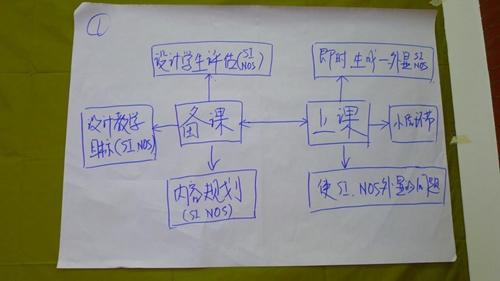 ①
设计学生评估(SI NOS)
即时生成—外显 SI NOS
设计教学
目标(SI NOS)
备课
上课
小结环节
内容规划
(SI NOS)
使SI、NOS外显的问题